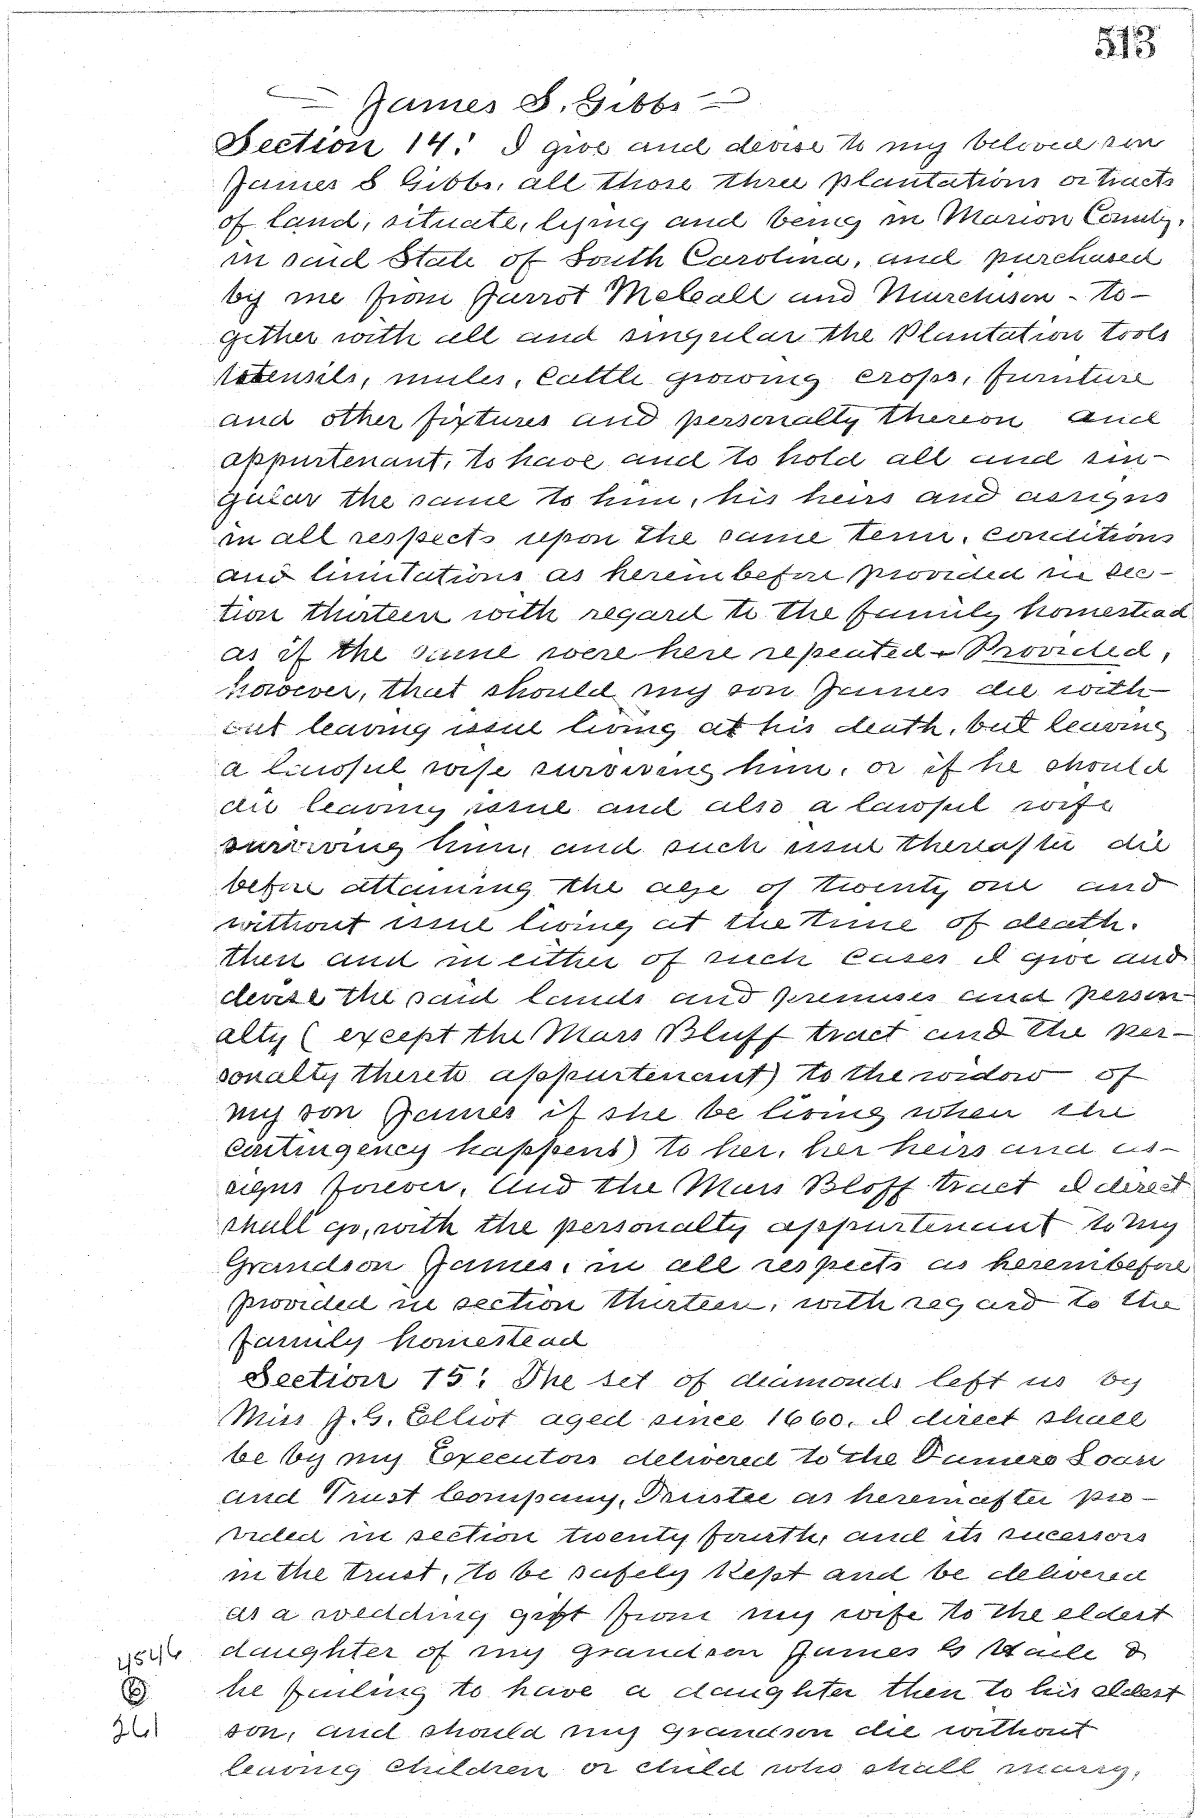 513
James S. Gibbs
Section 14: I give and devise to my beloved son
James S Gibbs, all those three plantations or tracts
of land, situate, lying and being in Marion County,
in said State of South Carolina, and purchased
by me from Jarrot McCall and Murchison - to-
gether with all and singular the Plantation tools
utensils, mules, cattle growing crops, furniture
and other fixtures and personalty thereon and
appurtenant, to have and to hold all and sin-
gular the same to him, his heirs and assigns
in all respects upon the same term, conditions
and limitations as hereinbefore provided in sec-
tion thirteen with regard to the family homestead
as if the same were here repeated - Provided,
however, that should my son James die with-
out leaving issue living at his death, but leaving
a lawful wife surviving him, or if he should
die leaving issue and also a lawful wife
surviving him, and such issue thereafter die
before attaining the age of twenty one and
without issue living at the time of death.
then and in either of such cases I give and
devise the said lands and premises and person-
alty ( except the Mars Bluff tract and the per-
sonalty thereto appurtenant) to the widow of
my son James if she be living when the
contingency happens) to her, her heirs and as-
signs forever. And the Mars Bloff tract I direct
shall go, with the personalty appurtenant to my
Grandson James, in all respects as hereinbefore
provided in section thirteen, with regard to the
family homestead
Section 15: The set of diamonds left us by
Miss J. G. Elliot aged since 1660. I direct shall
be by my Executors delivered to the Farmers Loan
and Trust Company, Trustee as hereinafter pro-
vided in section twenty fourth, and its sucessors
in the trust, to be safely kept and be delivered
as a wedding gift from my wife to the eldest
daughter of my grandson James G Haile &
he failing to have a daughter then to his eldest
son, and should my grandson die without
leaving children or child who shall marry,
4546
261